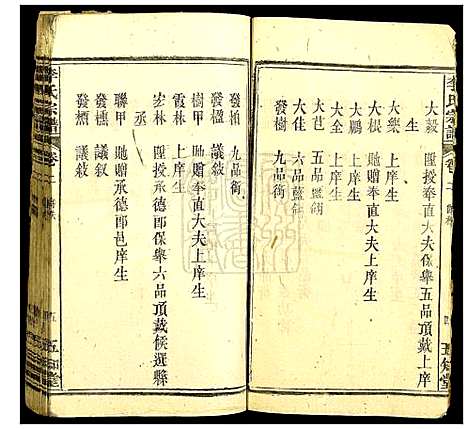 李氏宗譜
卷二
五知堂
大毅 匯授奉直大夫保舉五品頂戴上庠
生
大樂 上庠生
大根 馳贈奉直大夫上庠生
大鵬 上庠生
大全 上庠生
大芑 五品藍翎
大佳 六品藍翎
發樹 九品銜
發柏 九品銜
發楹 議敘
樹甲 馳贈奉直大夫上庠生
霞林 上庠生
宏林 匯授承德郎保舉六品頂戴候選縣
丞
聯甲 馳贈承德郎邑庠生
發櫄 議敘
發槱 議敘
李氏宗譜
卷二
五知堂